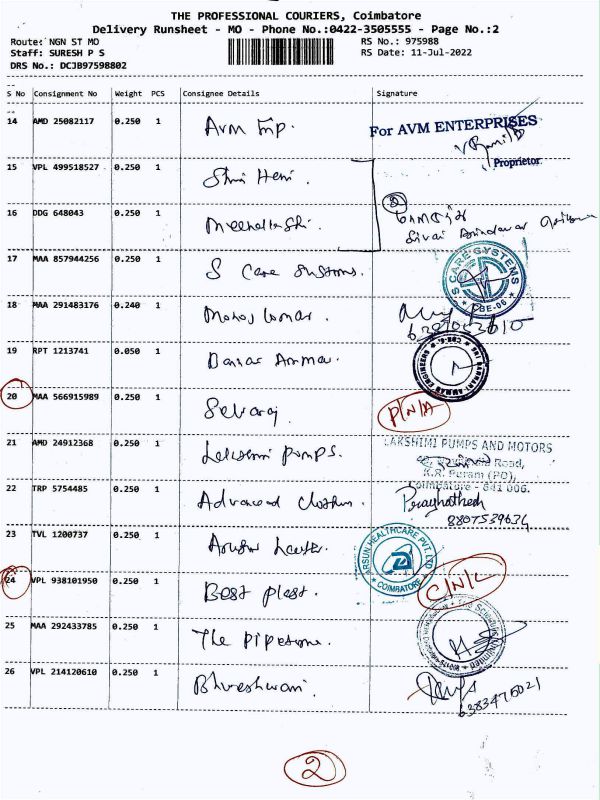 THE PROFESSIONAL COURIERS, Coimbatore
Delivery Runsheet - MO - Phone No.:0422-3505555 - Page No.:2
Route: NGN ST MO RS No.: 975988
Staff: SURESH P S RS Date: 11-Jul-2022
DRS No.: DCJB97598802
S No Consignment No Weight PCS Consignee Details Signature
14 AMD 25082117 0.250 1 Avm Enp. For AVM ENTERPRISES
Proprietor
15 VPL 499518527 0.250 1 Shri Heni.
16 DDG 648043 0.250 1 Meenakshi.
17 MAA 857944256 0.250 1 S Care Systems. S CARE SYSTEMS CBE-06
18 MAA 291483176 0.240 1 Manoj Kumar.
19 RPT 1213741 0.050 1 Bannar Amman.
20 MAA 566915989 0.250 1 Selvaraj P/N/A
21 AMD 24912368 0.250 1 Lakshmi pumps. LAKSHIMI PUMPS AND MOTORS
Road,
K.R. Puram (PO),
Coimbatore - 641 006.
22 TRP 5754485 0.250 1 Advanced clothing.
8807539634
23 TVL 1200737 0.250 1 ARSUN HEALTHCARE PVT. LTD COIMBATORE
24 VPL 938101950 0.250 1 Best plast. C/N/L
25 MAA 292433785 0.250 1 The pipestone.
26 VPL 214120610 0.250 1 Bhuveshwari.
6383475021
2